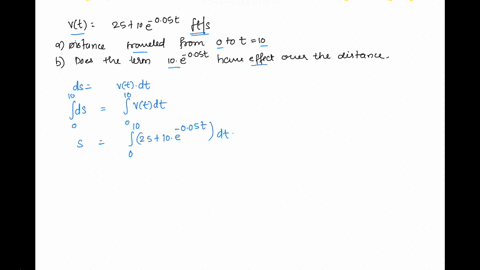 v(t) = 25 + 10 e^{-0.05t} ft/s
a) Distance traveled from 0 to t = 10
b) Does the term 10. e^{-0.05t} have effect over the distance.
ds = v(t). dt
∫_0^{10} ds = ∫_0^{10} v(t) dt
s = ∫_0^{10} (25 + 10. e^{-0.05t}) dt.